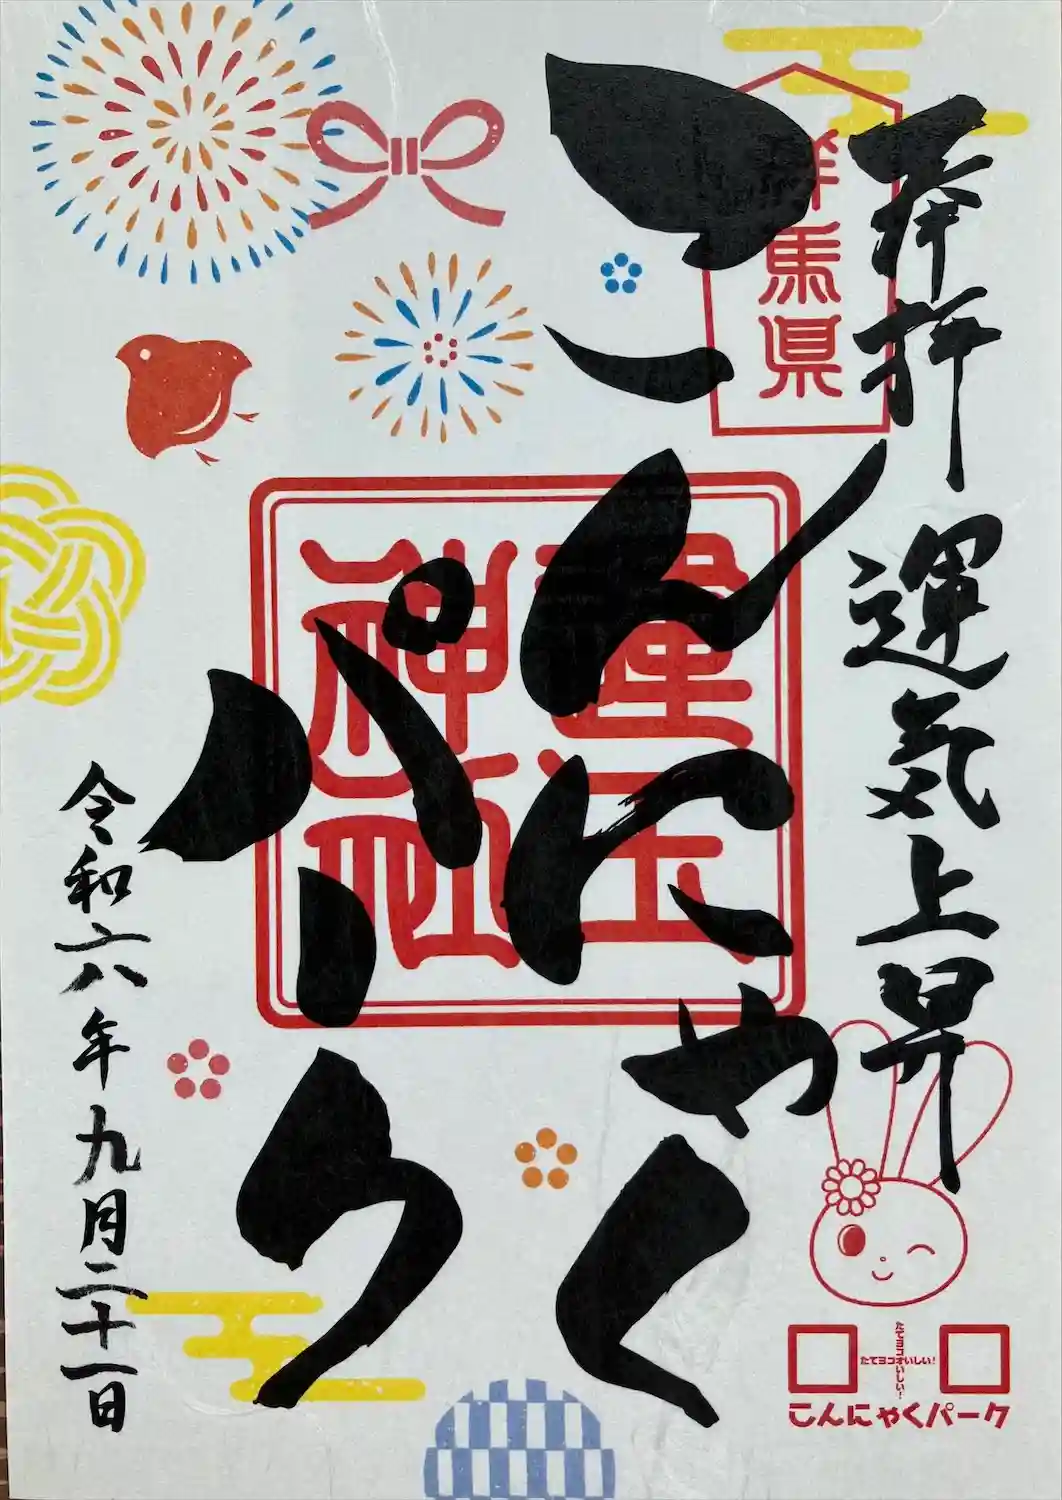 奉拝
運気上昇
群馬県
こんにゃく
パーク
運玉
神社
令和六年九月二十一日
たてヨコオいしい!
たてヨコオいしい!
こんにゃくパーク